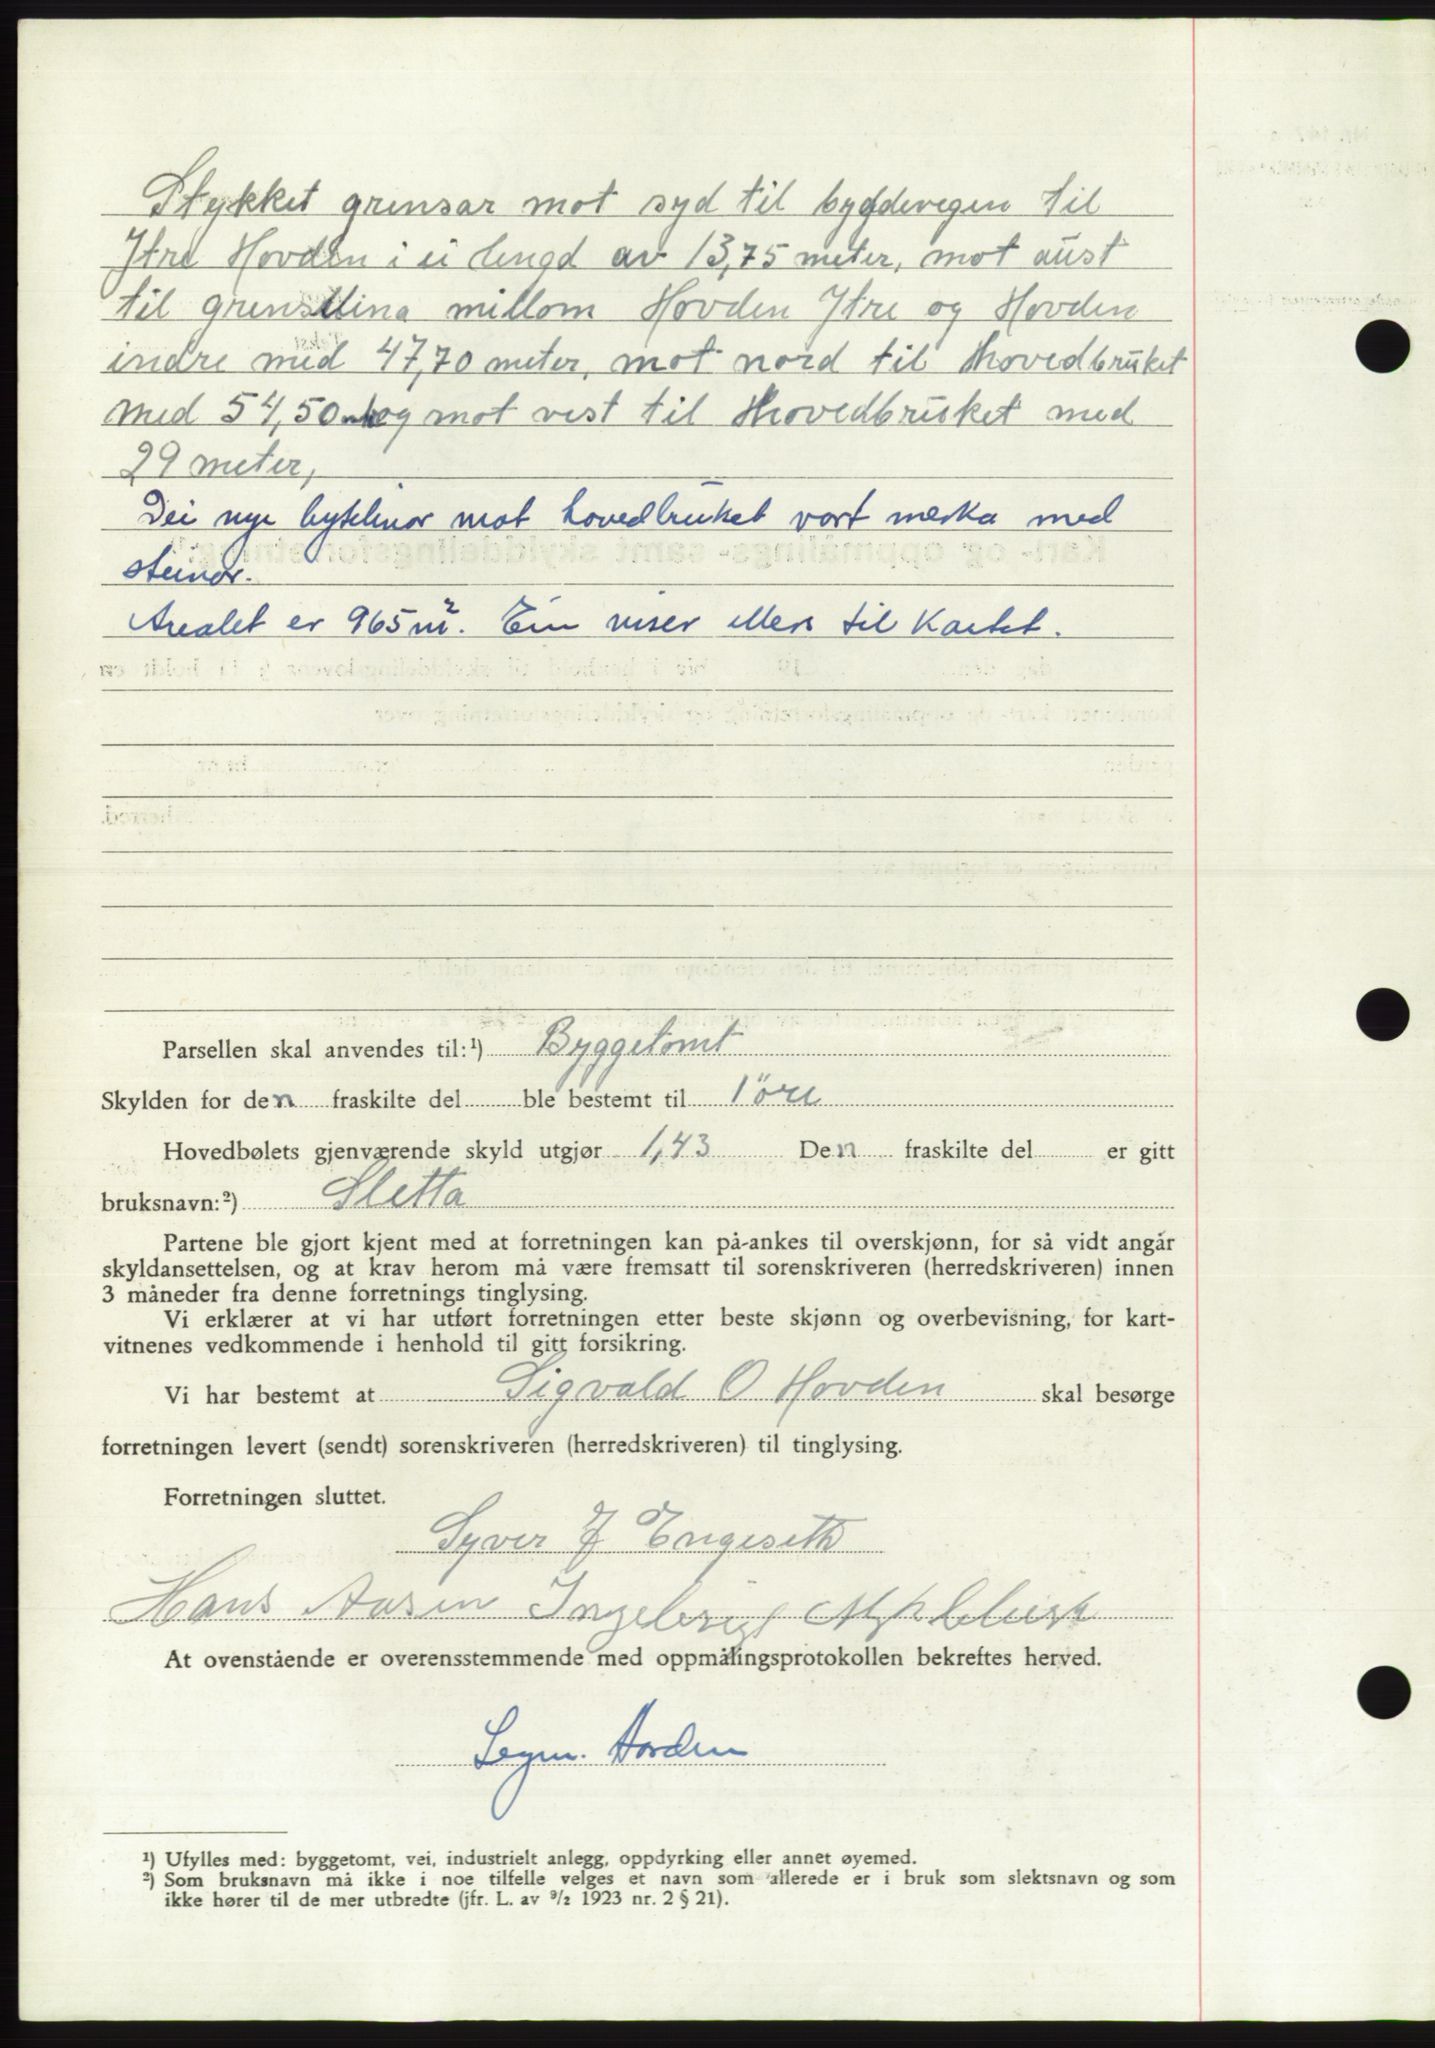 Stykket grensar mot syd til byggdevegen til
Ytre Hovden i ei lengd av 13,75 meter, mot aust
til grenslina millom Hovden Ytre og Hovden
indre med 47,70 meter, mot nord til hovedbruket
med 54,50 m og mot vest til hovedbruket med
29 meter,
Dei nye bytelinor mot hovedbruket vart merka med
steinar.
Arealet er 965 m². Ein viser ellers til Kartet.
Parsellen skal anvendes til:¹) Byggetomt
Skylden for den fraskilte del ble bestemt til 1 öre
Hovedbølets gjenværende skyld utgjør 1,43 Den fraskilte del er gitt
bruksnavn:²) Sletta
Partene ble gjort kjent med at forretningen kan på-ankes til overskjønn, for så vidt angår
skyldansettelsen, og at krav herom må være fremsatt til sorenskriveren (herredskriveren) innen
3 måneder fra denne forretnings tinglysing.
Vi erklærer at vi har utført forretningen etter beste skjønn og overbevisning, for kart-
vitnenes vedkommende i henhold til gitt forsikring.
Vi har bestemt at Sigvald O Hovden skal besørge
forretningen levert (sendt) sorenskriveren (herredskriveren) til tinglysing.
Forretningen sluttet.
Syver J Engeseth
Hans Aasen Ingebrigt
At ovenstående er overensstemmende med oppmålingsprotokollen bekreftes herved.
Hovden
¹) Ufylles med: byggetomt, vei, industrielt anlegg, oppdyrking eller annet øyemed.
²) Som bruksnavn må ikke i noe tilfelle velges et navn som allerede er i bruk som slektsnavn og som
ikke hører til de mer utbredte (jfr. L. av ⁹/₂ 1923 nr. 2 § 21).